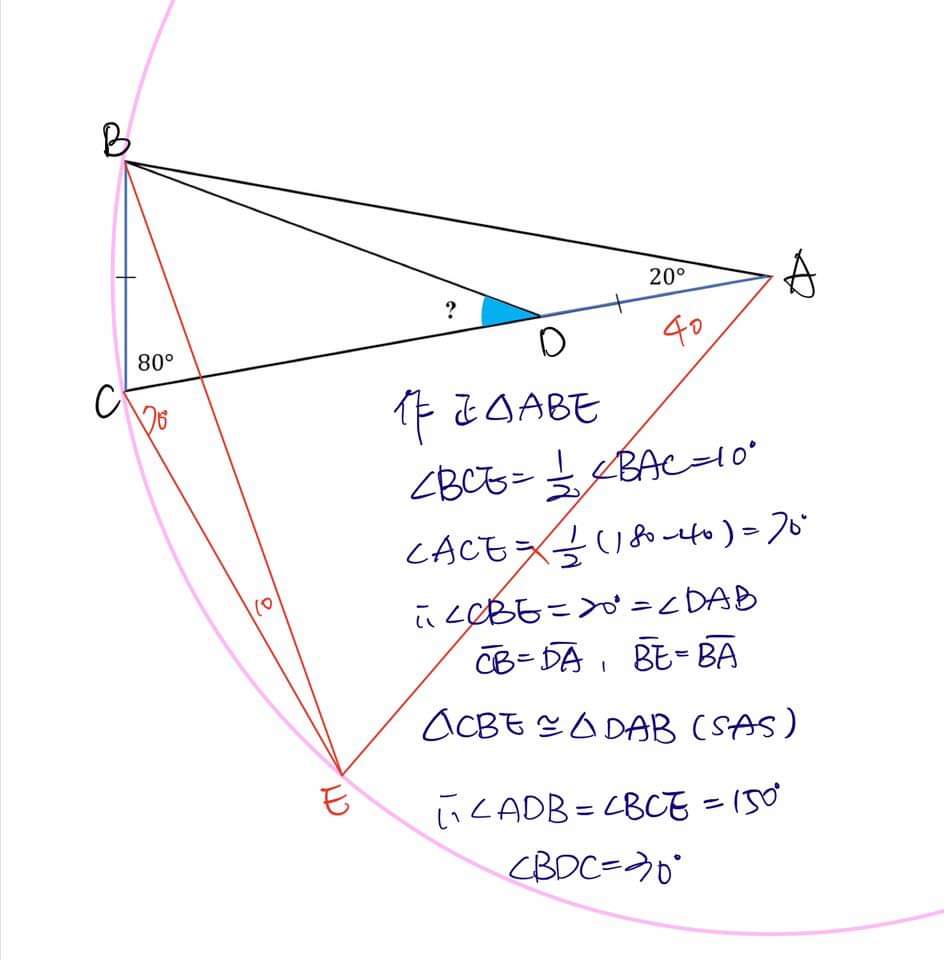 B
20°
A
?
D
40
80°
C
70
作正△ABE
∠BCE=½∠BAC=10°
∠ACE=½(180-40)=70°
∴∠CBE=20°=∠DAB
10
C̅B̅=D̅A̅, B̅E̅=B̅A̅
△CBE≅△DAB(SAS)
E
∴∠ADB=∠BCE=150°
∠BDC=30°